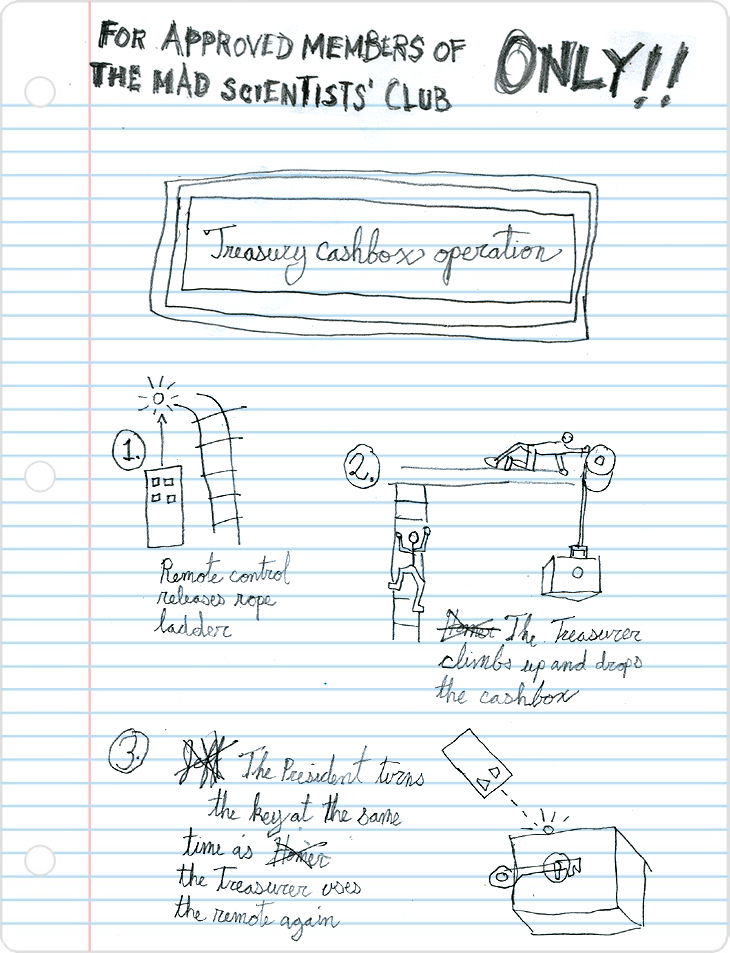 FOR APPROVED MEMBERS OF ONLY!!
THE MAD SCIENTISTS' CLUB
Treasury cashbox operation
1.
Remote control
releases rope
ladder
2.
Homer The Treasurer
climbs up and drops
the cashbox
3.
Jeff The President turns
the key at the same
time as Homer
the Treasurer uses
the remote again